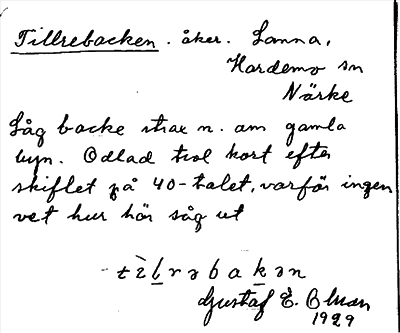 Tillrebacken. åker. Lanna,
Hardemo sn
Närke
Låg backe strax n. om gamla
byn. Odlad trol kort efter
skiftet på 40-talet, varför ingen
vet hur här såg ut
- tìlrəbakən
Gustaf E. Bluan
1929